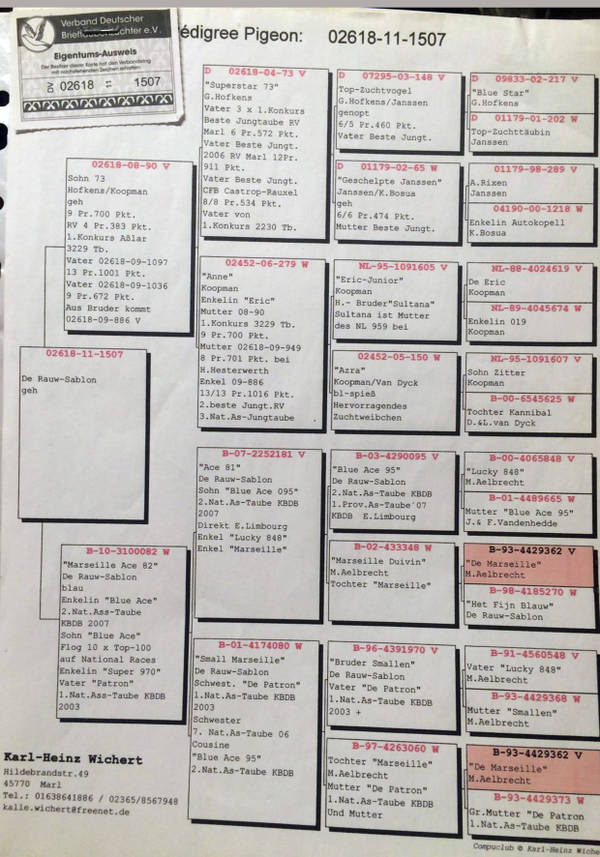 Verband Deutscher
Brieftaubenzüchter e.V.
Eigentums-Ausweis
Der Besitzer dieser Karte hat den Verbandsring
mit nachstehenden Zeichen erhalten:
02618 11 1507
édigree Pigeon: 02618-11-1507
02618-08-90 V
Sohn 73
Hofkens/Koopman
geh
9 Pr.700 Pkt.
RV 4 Pr.383 Pkt.
1.Konkurs Aßlar
3229 Tb.
Vater 02618-09-1097
13 Pr.1001 Pkt.
Vater 02618-09-1036
9 Pr.672 Pkt.
Aus Bruder kommt
02618-09-886 V
02618-11-1507
De Rauw-Sablon
geh
B-10-3100082 W
"Marseille Ace 82"
De Rauw-Sablon
blau
Enkelin "Blue Ace"
2.Nat.Ass-Taube
KBDB 2007
Sohn "Blue Ace"
Flog 10 x Top-100
auf National Races
Enkelin "Super 970"
Vater "Patron"
1.Nat.Ass-Taube KBDB
2003
Karl-Heinz Wichert
Hildebrandstr.49
45770 Marl
Tel.: 01638641886 / 02365/8567948
kalle.wichert@freenet.de
D 02618-04-73 V
"Superstar 73"
G.Hofkens
Vater 3 x 1.Konkurs
Beste Jungtaube RV
Marl 6 Pr.572 Pkt.
Vater Beste Jungt.
2006 RV Marl 12Pr.
911 Pkt.
Vater Beste Jungt.
CFB Castrop-Rauxel
8/8 Pr.534 Pkt.
Vater von
1.Konkurs 2230 Tb.
02452-06-279 W
"Anne"
Koopman
Enkelin "Eric"
Mutter 08-90
1.Konkurs 3229 Tb.
9 Pr.700 Pkt.
Mutter 02618-09-949
8 Pr.701 Pkt. bei
H.Hesterwerth
Enkel 09-886
13/13 Pr.1016 Pkt.
2.beste Jungt.RV
3.Nat.As-Jungtaube
B-07-2252181 V
"Ace 81"
De Rauw-Sablon
Sohn "Blue Ace 095"
2.Nat.As-Taube KBDB
2007
Direkt E.Limbourg
Enkel "Lucky 848"
Enkel "Marseille"
B-01-4174080 W
"Small Marseille"
De Rauw-Sablon
Schwest. "De Patron"
1.Nat.As-Taube KBDB
2003
Schwester
7. Nat.As-Taube 06
Cousine
"Blue Ace 95"
2.Nat.As-Taube KBDB
D 07295-03-148 V
Top-Zuchtvogel
G.Hofkens/Janssen
genopt
6/5 Pr.460 Pkt.
Vater Beste Jungt.
D 01179-02-65 W
"Geschelpte Janssen"
Janssen/K.Bosua
geh
6/6 Pr.474 Pkt.
Mutter Beste Jungt.
NL-95-1091605 V
"Eric-Junior"
Koopman
H.- Bruder"Sultana"
Sultana ist Mutter
des NL 959 bei
02452-05-150 W
"Azra"
Koopman/Van Dyck
bl-spieß
Hervorragendes
Zuchtweibchen
B-03-4290095 V
"Blue Ace 95"
De Rauw-Sablon
2.Nat.As-Taube KBDB
1.Prov.As-Taube´07
KBDB E.Limbourg
B-02-433348 W
"Marseille Duivin"
M.Aelbrecht
Tochter "Marseille"
B-96-4391970 V
"Bruder Smallen"
De Rauw-Sablon
Vater "De Patron"
1.Nat.As-Taube KBDB
2003 +
B-97-4263060 W
Tochter "Marseille"
M.Aelbrecht
Mutter "De Patron"
1.Nat.As-Taube KBDB
Und Mutter
D 09833-02-217 V
"Blue Star"
G.Hofkens
D 01179-01-202 W
Top-Zuchttäubin
Janssen
01179-98-289 V
A.Rixen
Janssen
04190-00-1218 W
Enkelin Autokopell
K.Bosua
NL-88-4024619 V
De Eric
Koopman
NL-89-4045674 W
Enkelin 019
Koopman
NL-95-1091607 V
Sohn Zitter
Koopman
B-00-6545625 W
Tochter Kannibal
D.&L.van Dyck
B-00-4065848 V
"Lucky 848"
M.Aelbrecht
B-01-4489665 W
Mutter "Blue Ace 95"
J.& F.Vandenhedde
B-93-4429362 V
"De Marseille"
M.Aelbrecht
B-98-4185270 W
"Het Fijn Blauw"
De Rauw-Sablon
B-91-4560548 V
Vater "Lucky 848"
M.Aelbrecht
B-93-4429368 W
Mutter "Smallen"
M.Aelbrecht
B-93-4429362 V
"De Marseille"
M.Aelbrecht
B-93-4429373 W
Gr.Mutter "De Patron
1.Nat.As-Taube KBDB
Compuclub © Karl-Heinz Wiche